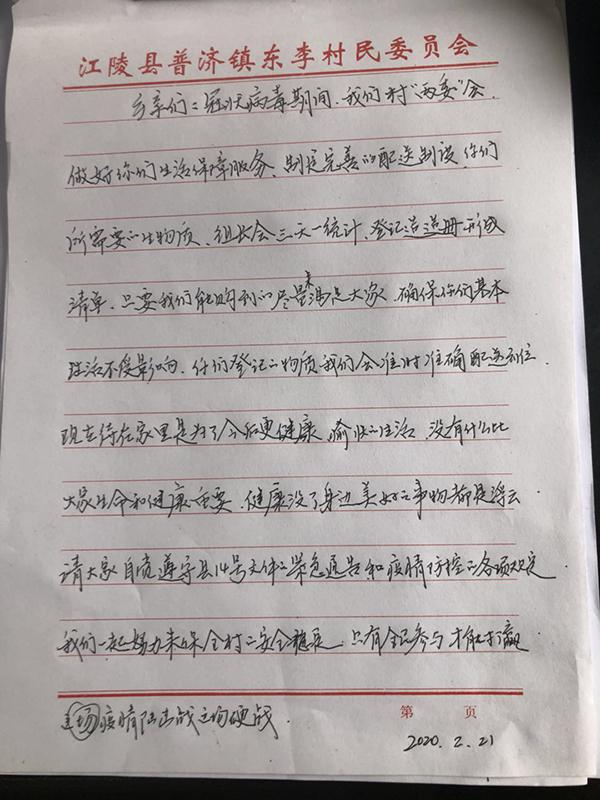 江陵县普济镇东李村民委员会
乡亲们:冠状病毒期间、我们村“两委”会
做好你们生活保障服务、制定完善的配送制设、你们
所需要的生物质、组长会三天一统计、登记造册形成
清单、只要我们能购到的尽量来满足大家、确保你们基本
生活不受影响、你们登记的物质我们会准时准确配送到位
现在待在家里是为了今后更健康、愉快的生活、没有什么比
大家生命和健康重要、健康没了身边美好的事物都是浮云
请大家自觉遵守县14号文件的紧急通告和疫情防控的各项规定
我们一起努力来保全村的安全稳定、只有全民参与才能打赢
这场疫情阻击战之硬战.
第 页
2020.2.21